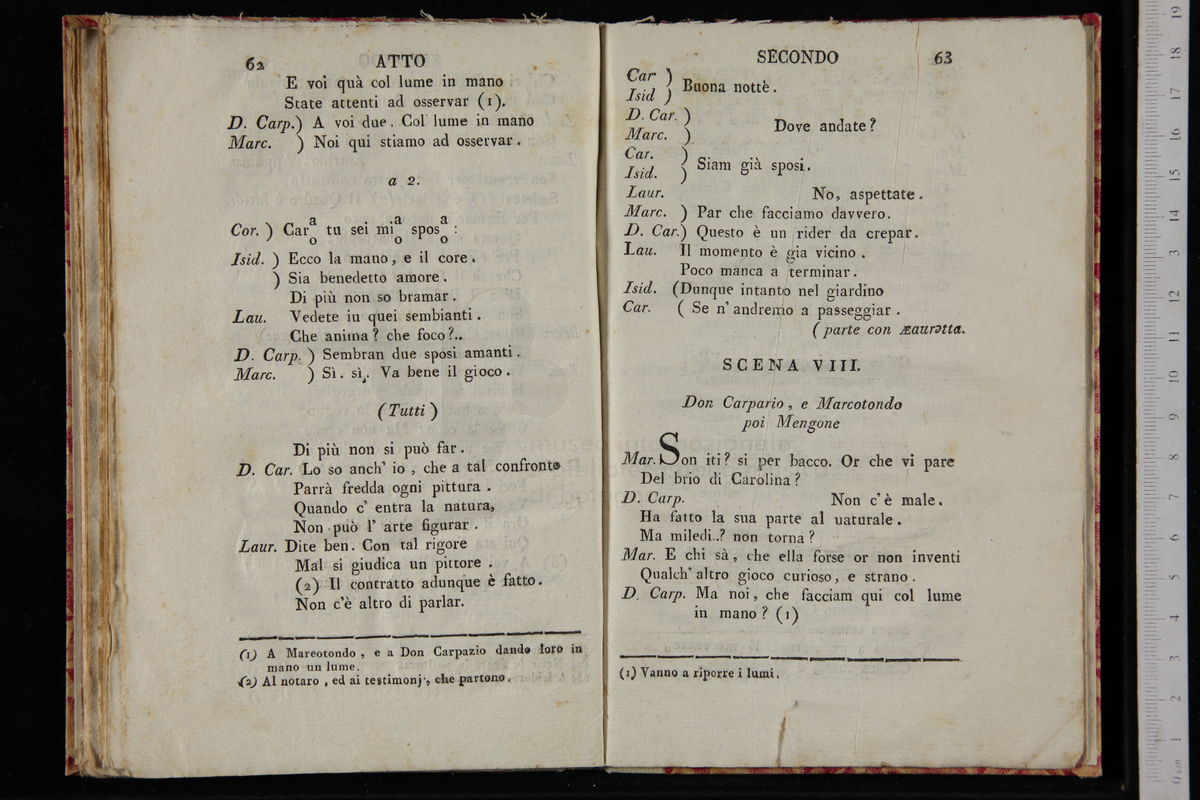 62 ATTO
E voi quà col lume in mano
State attenti ad osservar (1).
D. Carp.) A voi due. Col lume in mano
Marc. ) Noi qui stiamo ad osservar.
a 2.
Cor. ) Car a/o tu sei mi a/o spos a/o :
Isid. ) Ecco la mano, e il core.
) Sia benedetto amore.
Di più non so bramar.
Lau. Vedete in quei sembianti.
Che anima? che foco?..
D. Carp. ) Sembran due sposi amanti.
Marc. ) Sì. sì,. Va bene il gioco.
(Tutti)
Di più non si può far.
D. Car. Lo so anch' io, che a tal confronto
Parrà fredda ogni pittura.
Quando c' entra la natura,
Non può l' arte figurar.
Laur. Dite ben. Con tal rigore
Mal si giudica un pittore.
(2) Il contratto adunque è fatto.
Non c'è altro di parlar.
(1) A Mareotondo, e a Don Carpazio dando loro in
mano un lume.
(2) Al notaro, ed ai testimonj, che partono.
SECONDO 63
Car )
Isid ) Buona nottè.
D. Car. )
Marc. ) Dove andate?
Car. )
Isid. ) Siam già sposi.
Laur. No, aspettate.
Marc. ) Par che facciamo davvero.
D. Car.) Questo è un rider da crepar.
Lau. Il momento è gia vicino.
Poco manca a terminar.
Isid. (Dunque intanto nel giardino
Car. ( Se n' andremo a passeggiar.
(parte con Æaurotta.
SCENA VIII.
Don Carpario, e Marcotondo
poi Mengone
Mar. Son iti? si per bacco. Or che vi pare
Del brio di Carolina?
D. Carp. Non c'è male.
Ha fatto la sua parte al uaturale.
Ma miledi..? non torna?
Mar. E chi sà, che ella forse or non inventi
Qualch' altro gioco curioso, e strano.
D. Carp. Ma noi, che facciam qui col lume
in mano? (1)
(1) Vanno a riporre i lumi.